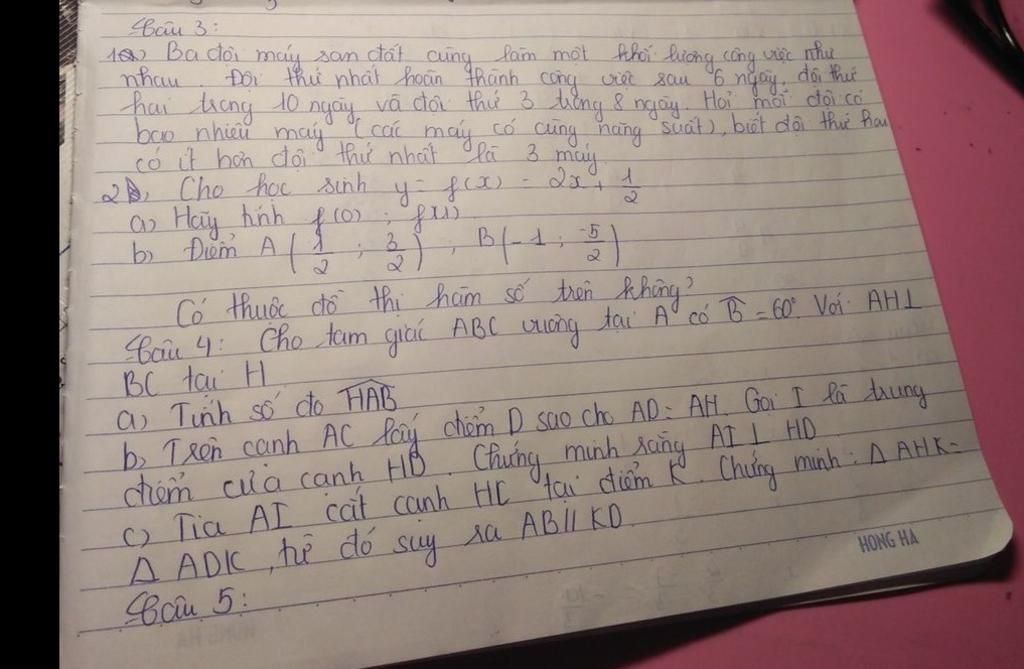 Câu 3:
1a) Ba đội máy san đất cùng làm một khối lượng công việc như
nhau. Đội thứ nhất hoàn thành công việc sau 6 ngày, đội thứ
hai trong 10 ngày và đội thứ 3 trong 8 ngày. Hỏi mỗi đội có
bao nhiêu máy (các máy có cùng năng suất), biết đội thứ hai
có ít hơn đội thứ nhất là 3 máy.
2b, Cho học sinh y = f(x) = 2x + 1/2
a) Hãy tính f(0); f(1)
b) Điểm A (1/2; 3/2), B(-1; -5/2)
Có thuộc đồ thị hàm số trên không?
Câu 4: Cho tam giác ABC vuông tại A có B̂ = 60°. Với AH⊥
BC tại H
a) Tính số đo HAB
b, Trên cạnh AC lấy điểm D sao cho AD = AH. Gọi I là trung
điểm của cạnh HD. Chứng minh rằng AI ⊥ HD
c) Tia AI cắt cạnh HC tại điểm K. Chứng minh: Δ AHK =
Δ ADK, từ đó suy ra AB // KD.
HONG HA
Câu 5: